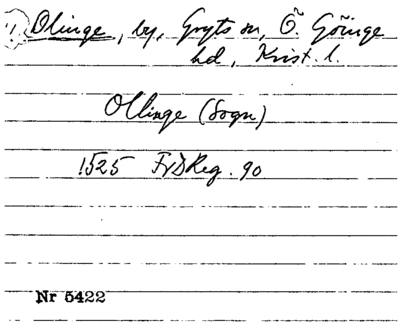 1) Olinge, by, Gryts sn, Ö. Göinge
hd, Krist. l.
Ollinge (Sogn)
1525 FrDReg. 90
Nr 5422